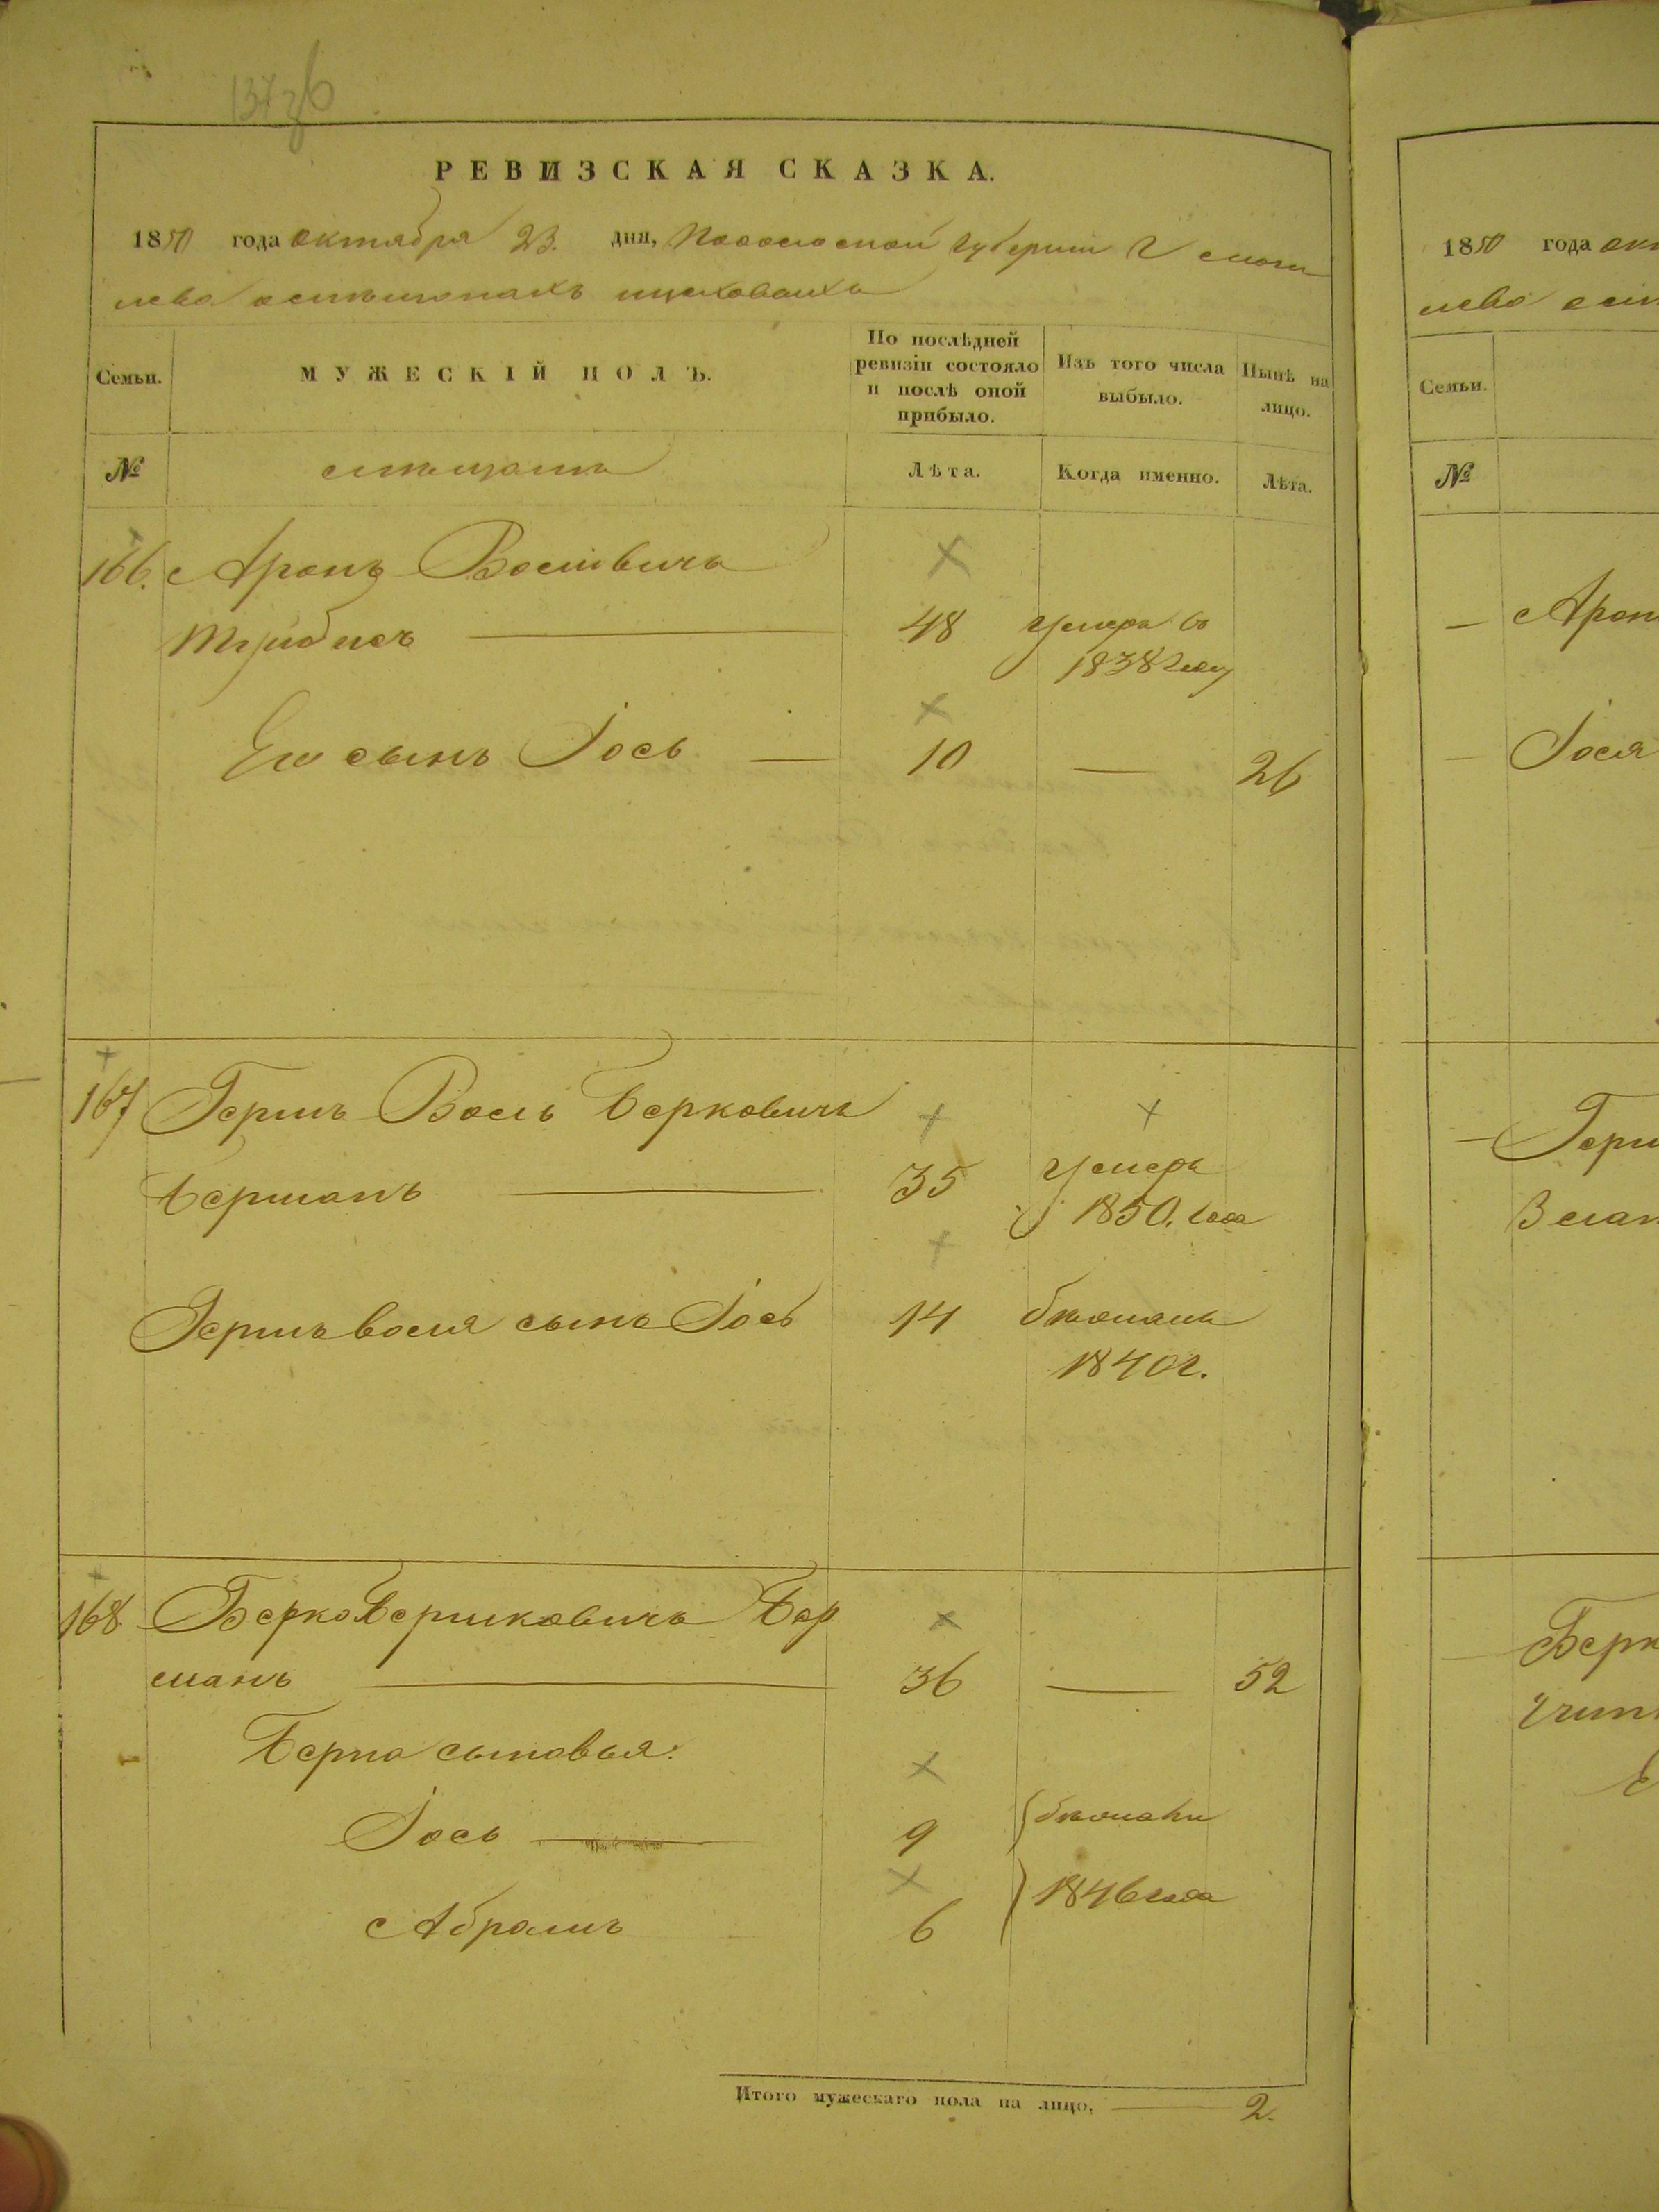 РЕВИЗСКАЯ СКАЗКА.
1850 года октября 23. дня, Подольской Губернии г моги
лева о мѣщанахъ
Семьи.
МУЖЕСКІЙ ПОЛЪ.
По послѣдней ревизіи состояло и послѣ оной прибыло.
Изъ того числа выбыло.
Нынѣ на лицо.
№
мѣщане
Лѣта.
Когда именно.
Лѣта.
166. Аронъ
48 Умеръ въ
1838 году
Его сынъ Іось — 10 — 26
167 Гершъ Беркович
Берманъ — 35 Умеръ
1850. года
сынъ Іось 14 бѣжалъ
1840 г.
168. Берко Бершковичъ Бер
манъ — 36 — 52
Берка сыновья:
Іось — 9 бѣжали
1846 года
Абрамъ 6
Итого мужескаго пола на лицо, — 2.
1850 года окт
лева о мѣ
Семьи.
№
— Арон
— Іося
— Герш
Берк